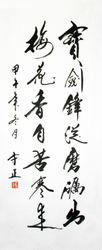 寶劍鋒從磨礪出
梅花香自苦寒來
甲午年冬月 李正